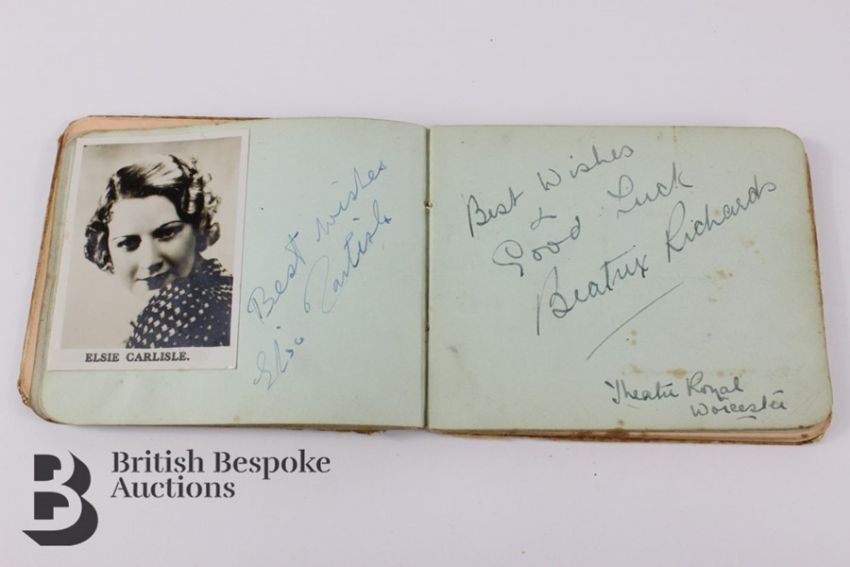 ELSIE CARLISLE.
Best wishes
Elsie Carlisle
Best Wishes
&
Good Luck
Beatrix Richards
Theatre Royal
Worcester
British Bespoke
Auctions
B